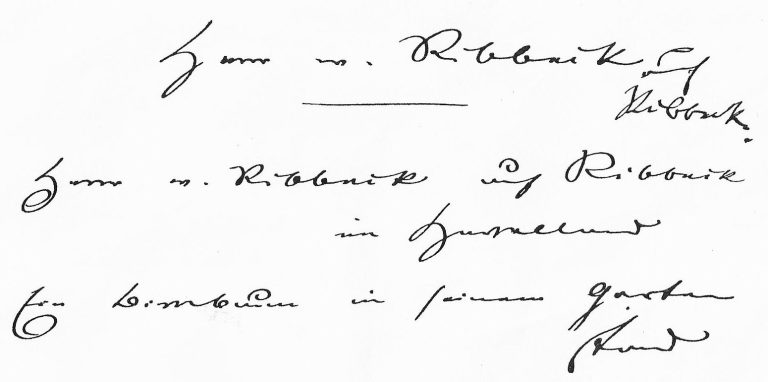 Herr v. Ribbeck auf
Ribbeck.
Herr v. Ribbeck auf Ribbeck
im Havelland
Ein Birnbaum in seinem Garten
stand